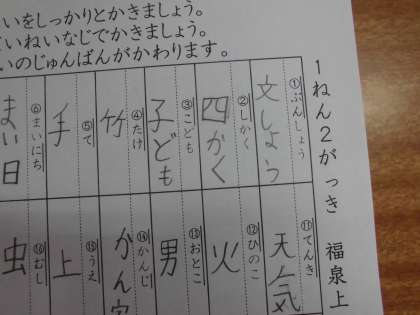 いをしっかりとかきましょう。
ていねいなじでかきましょう。
いのじゅんばんがかわります。
1ねん2がっき 福泉上
①ぶんしょう
文しよう
②しかく
四かく
③こども
子ども
④たけ
竹
⑤て
手
⑥まいにち
まい日
⑪てんき
天気
⑫ひのこ
火
⑬おとこ
男
⑭かんじ
かん字
⑮うえ
上
⑯むし
虫